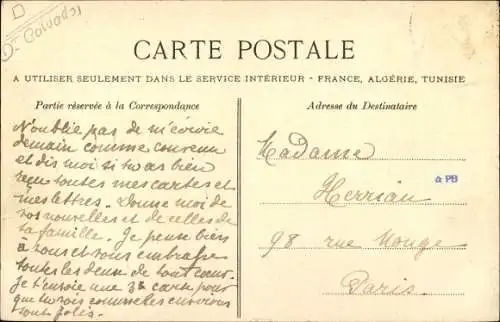 Dt Calvados
CARTE POSTALE
A UTILISER SEULEMENT DANS LE SERVICE INTÉRIEUR - FRANCE, ALGÉRIE, TUNISIE
Partie réservée à la Correspondance
N'oublie pas de m'écrire
demain comme convenu
et dis moi si tu as bien
reçu toutes mes cartes et
mes lettres. Donne moi de
vos nouvelles et de celles de
ta famille. Je pense bien
à vous et vous embrasse
toutes les deux de tout cœur.
Je t'envoie une 3e carte pour
que tu vois comme les environs
sont jolis.
Adresse du Destinataire
Madame
Herrian
98 rue Monge
Paris.
PB